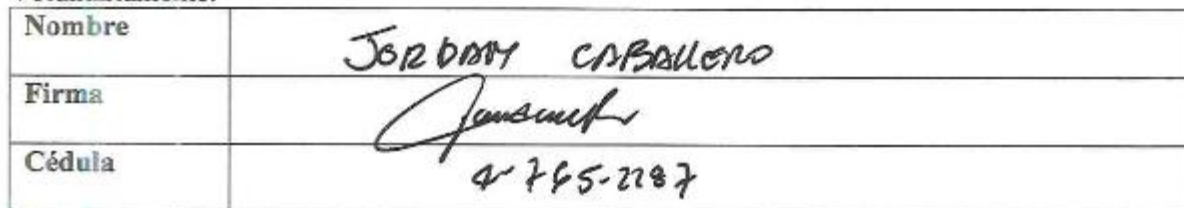 Nombre JORDAM CABALLERO
Firma
Cédula 4-765-2287